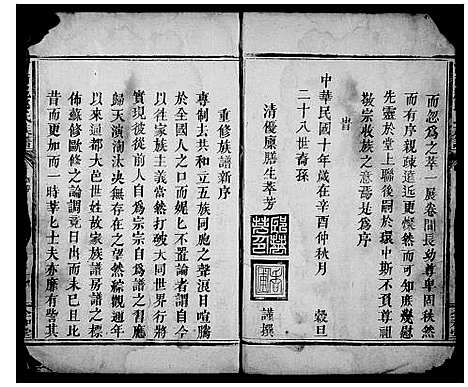 而忽為之萃一展卷間長幼尊卑固秩然
而有序親疎遠近更燦然而可知庶幾慰
先靈於堂上聯後嗣於環中斯不負尊祖
敬宗收族之意焉是為序
旹
中華民國十年歲在辛酉仲秋月 穀旦
二十八世裔孫
清優廩膳生萃芳 謹撰
重修族譜新序
專制去共和立五族同胞之聲浪日喧騰
於全國人之口而娓匕不置論者謂自今
以往家族主義當然打破大同世界行將
實現彼從前人自為宗宗自為譜之習應
歸天演淘汰决無存在之望然綜觀邇年
以來通都大邑世姓故家族譜房譜之標
佈蘇修歐修之論調竟日出而未已且比
昔而更加而一時莘匕士夫亦靡有訾其